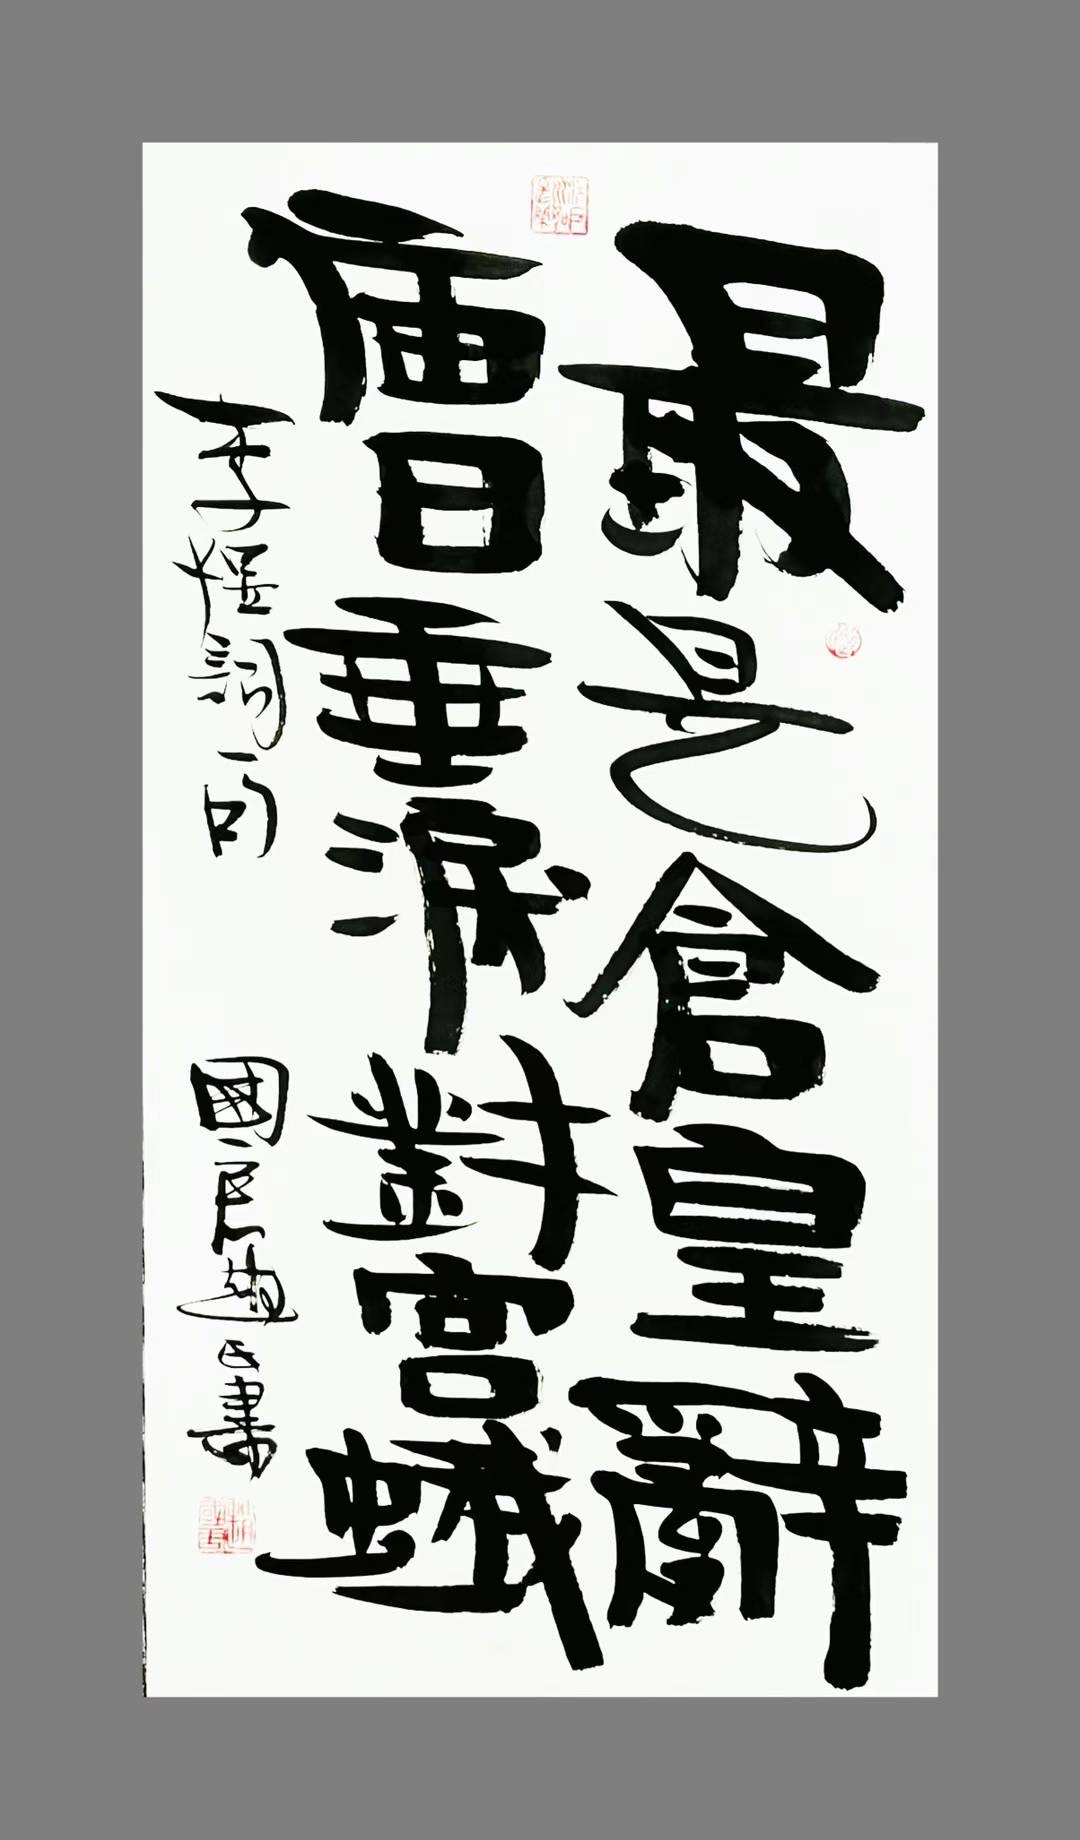 最是倉皇辭
廟日垂淚對宮蛾
李煜詞一句
國 書